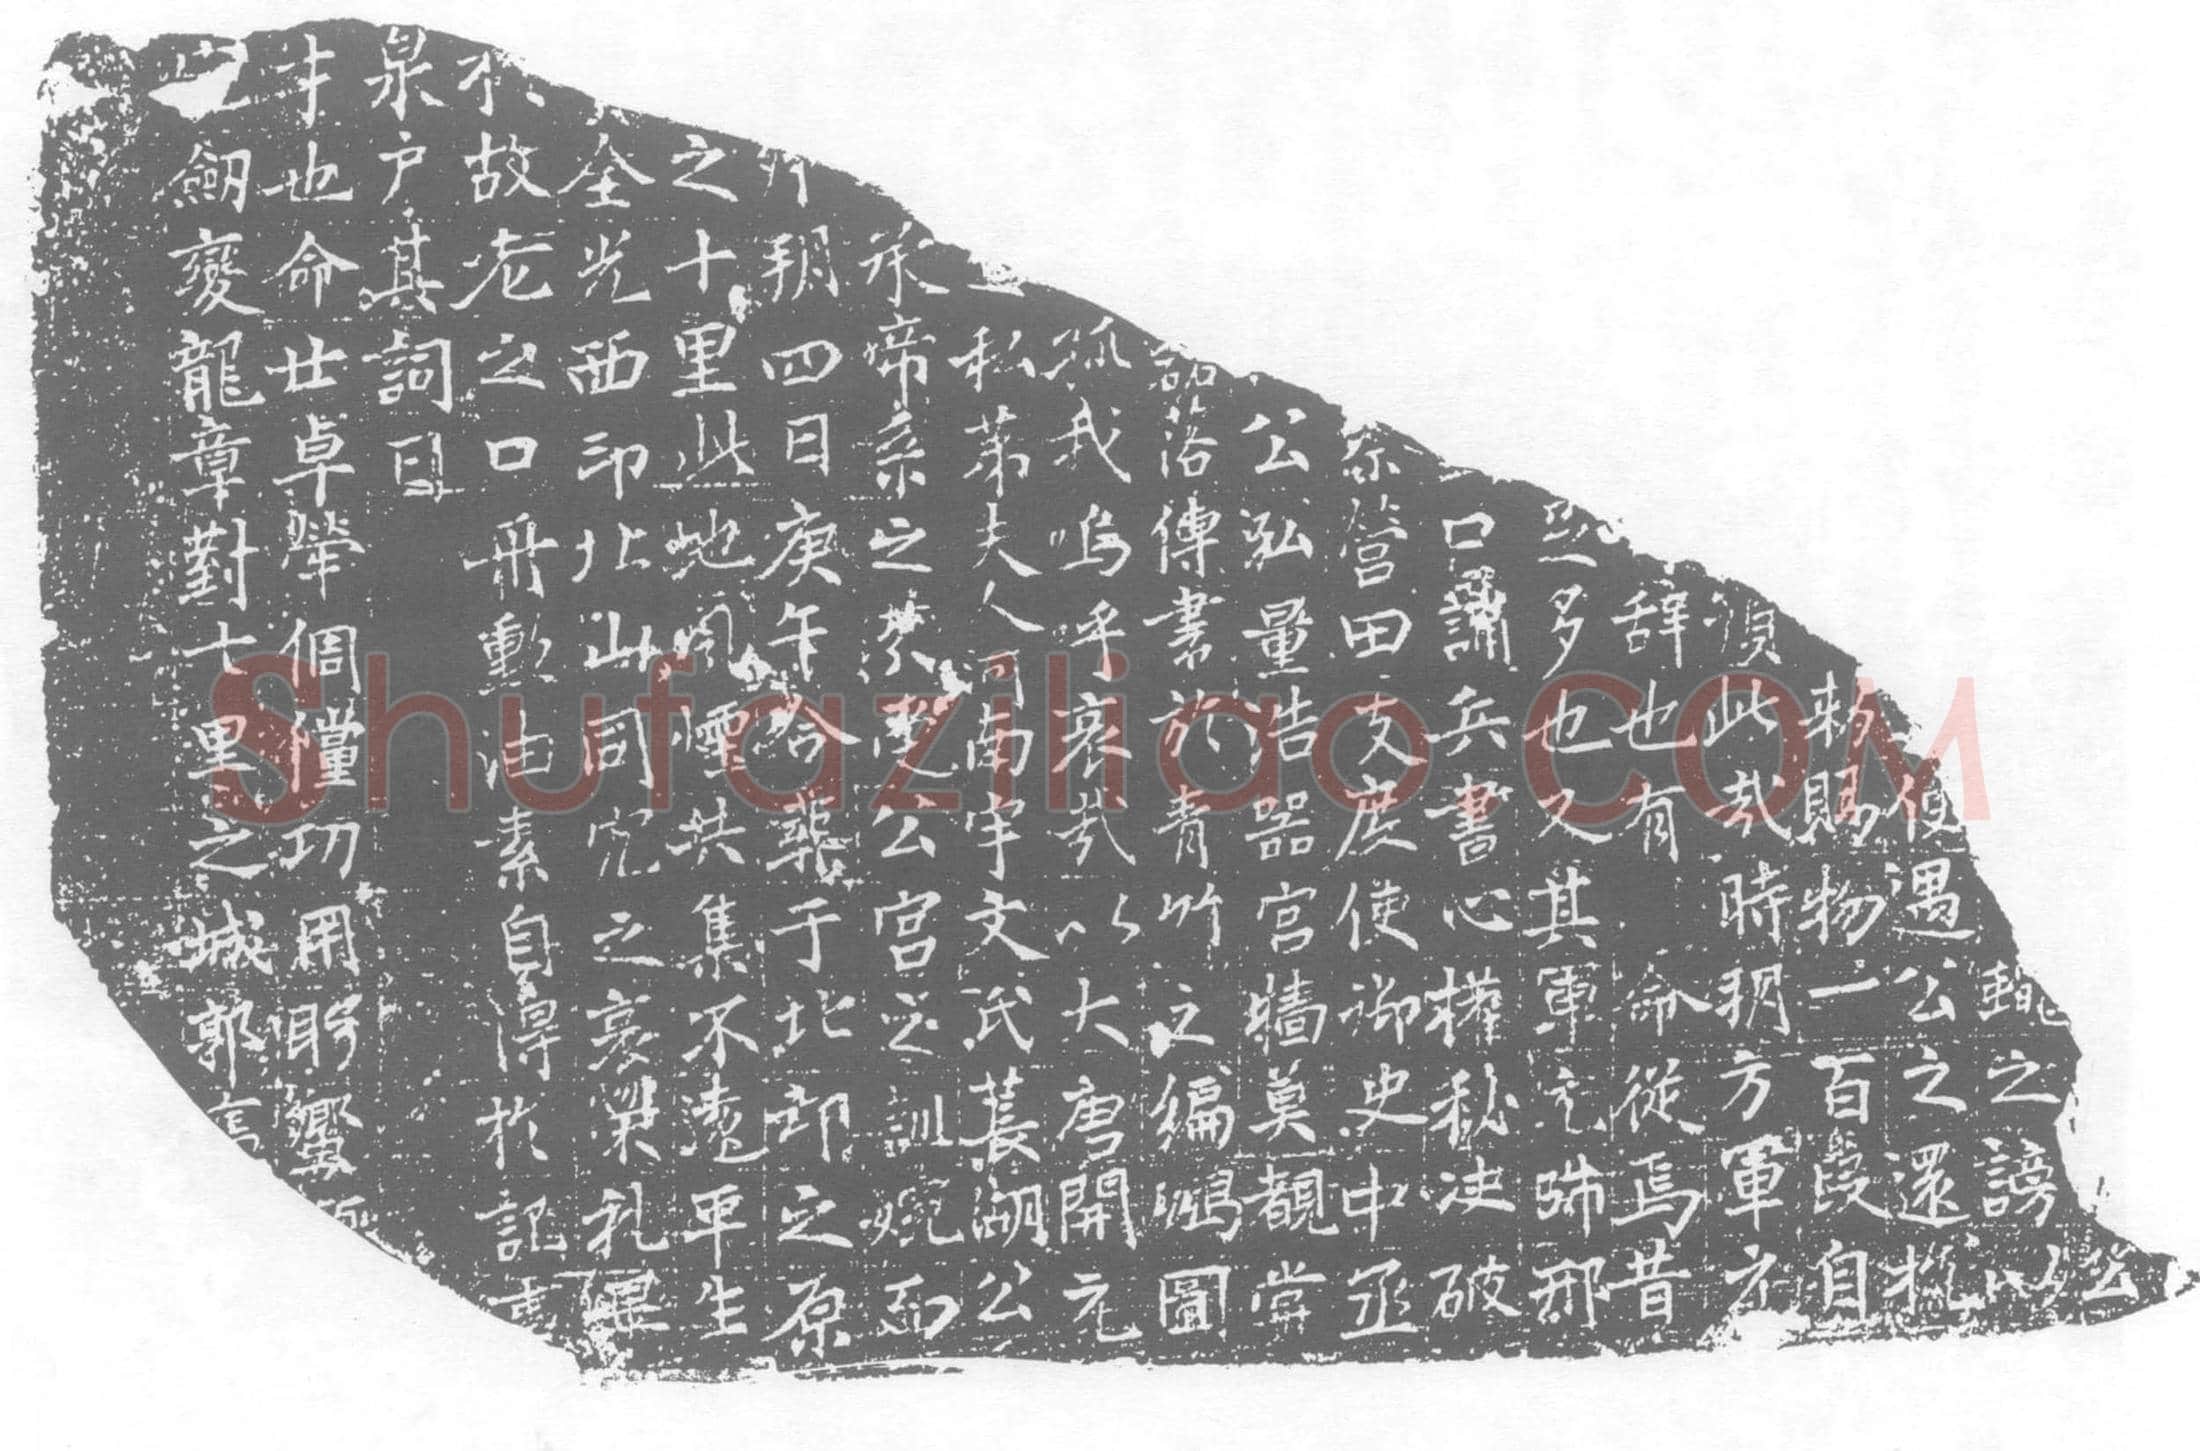 公
輗之謗以
便遇公之還拟
敕賜物一百段自
須此哉時朔方軍方
辞也有命從焉昔
多也又其軍之師那
口誦兵書心權秘決破
營田支度使御史中丞
公弘量浩器宮牆莫覩當
磊落傳書於青竹之編鴻圖
孤我嗚乎哀哉以大唐開元
私第夫人河南宇文氏萇湖公
承帝系之崇公宮之訓婉而
朔四日庚午合葬于北邙之原
之十里此地風煙共集不遠平生
全光西印北山同穴之哀梁孔畢
故老之口冊勳油素自得於記
泉户其詞曰
才也命世卓犖倜儻功用將蠻
劒變龍章對七里之城郭
Shufaziliao.COM